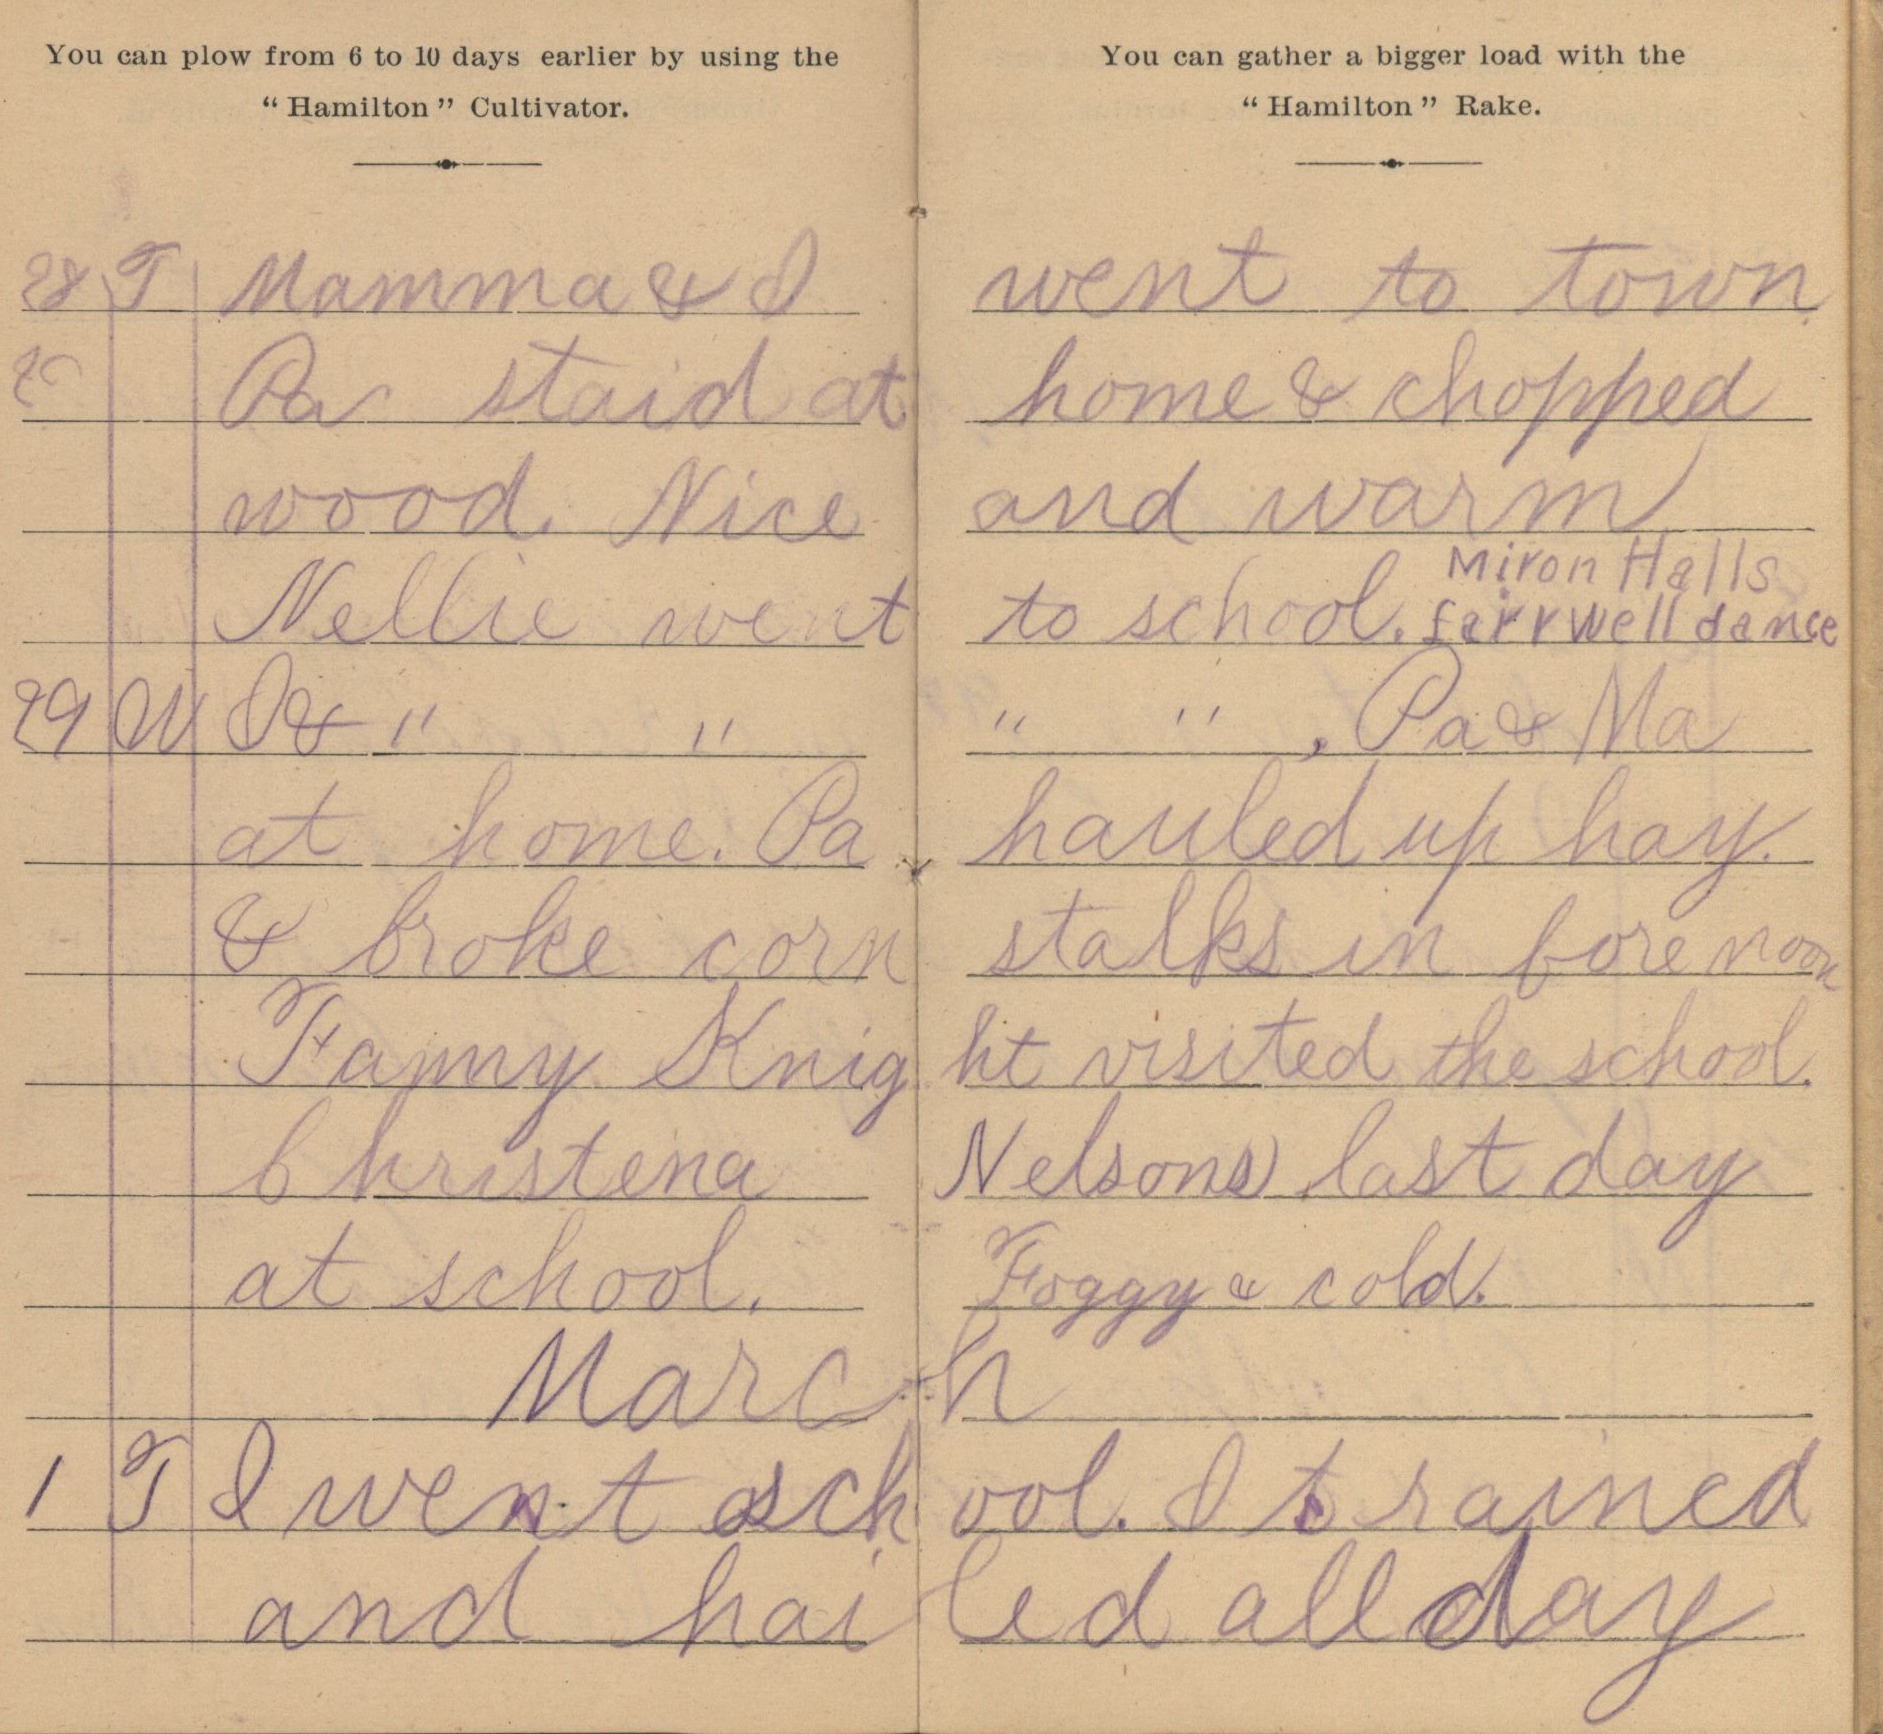 You can plow from 6 to 10 days earlier by using the
"Hamilton" Cultivator.
You can gather a bigger load with the
"Hamilton" Rake.
28 T Mamma & I went to town
Pa staid at home & chopped
wood. Nice and warm
Nellie went to school. Miron Halls
farrwell dance
29 W I & " " " " , Pa & Ma
at home. Pa hauled up hay.
& broke corn stalks in fore noon
Fanny Knight visited the school.
Christena Nelsons last day
at school. Foggy & cold.
March
1 T I went school. It rained
and hailed all day